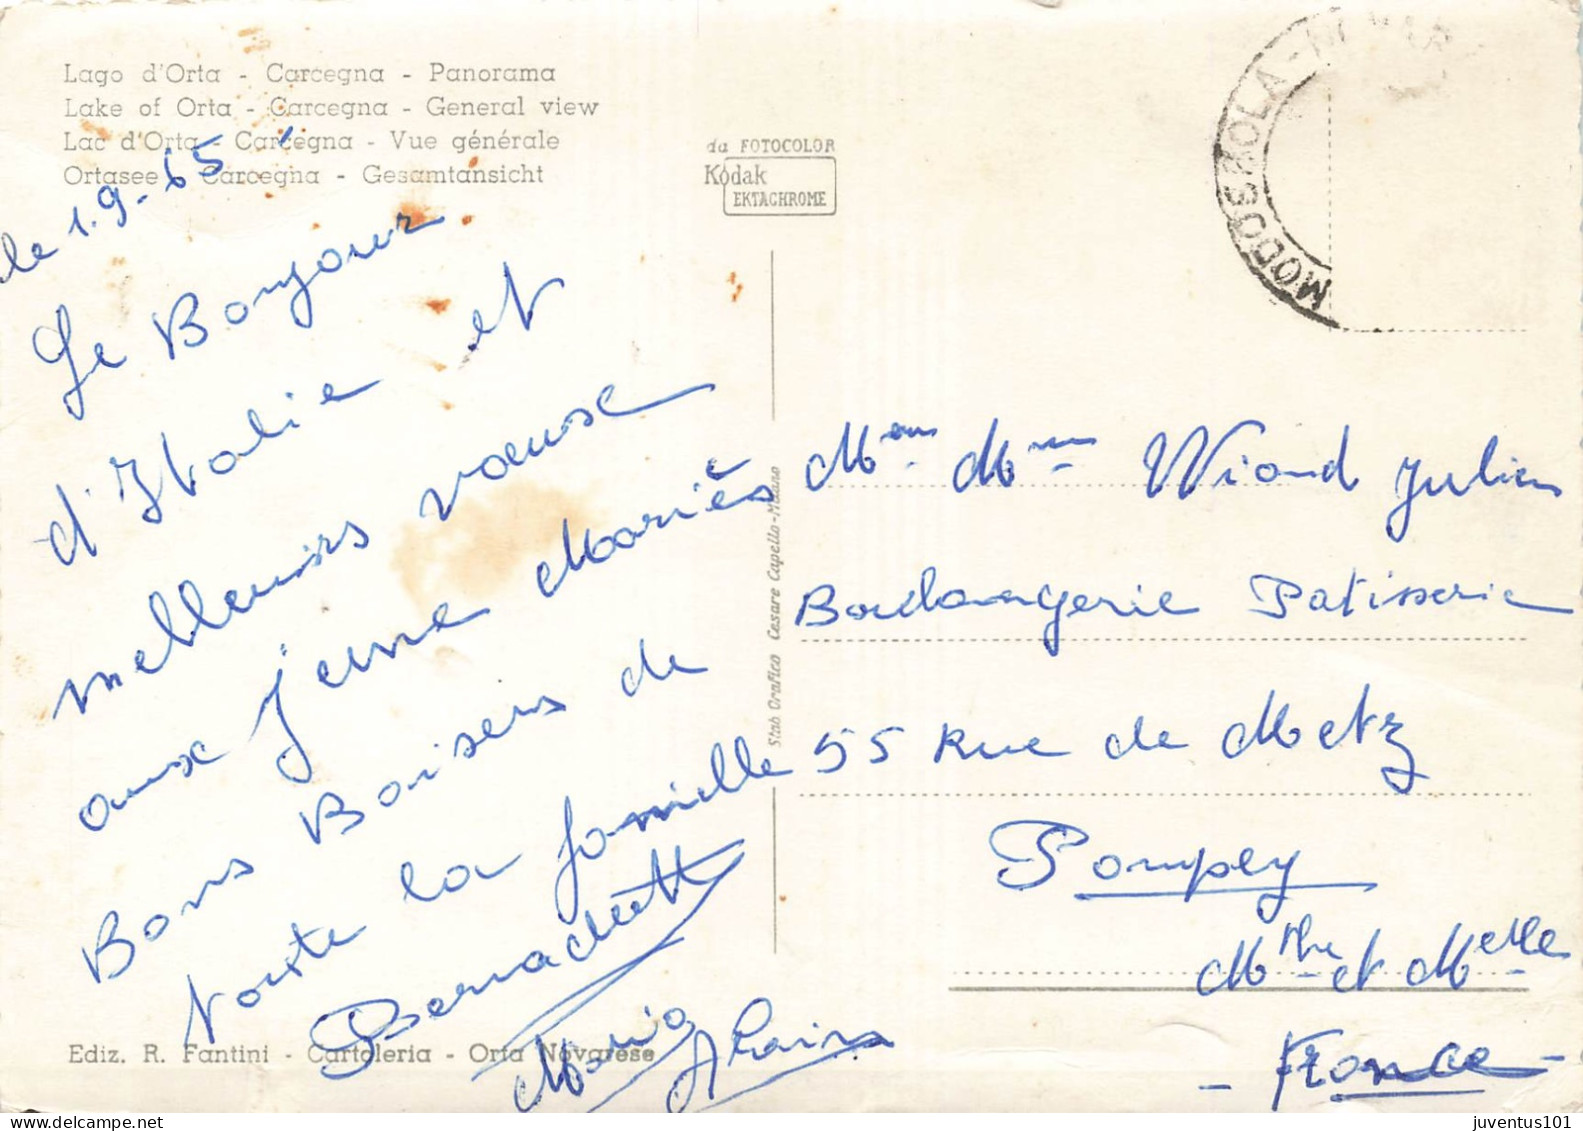 Lago d'Orta - Carcegna - Panorama
Lake of Orta - Carcegna - General view
Lac d'Orta - Carcegna - Vue générale
Ortasee - Carcegna - Gesamtansicht
da FOTOCOLOR
Kodak
EKTACHROME
le 1.9-65
Le Bonjour
d'Italie et
meilleurs vœuse
aux Jeune Mariès
Bons Baisers de
toute la famille
Bernadette
Mario
Alain
Stab Grafico Cesare Capello-Milano
M Mme Wiond Julien
Boulangerie Patisserie
55 Rue de Metz
Pompey
Mthe et Melle
- France -
Ediz. R. Fantini - Cartoleria - Orta Novarese
juventus101